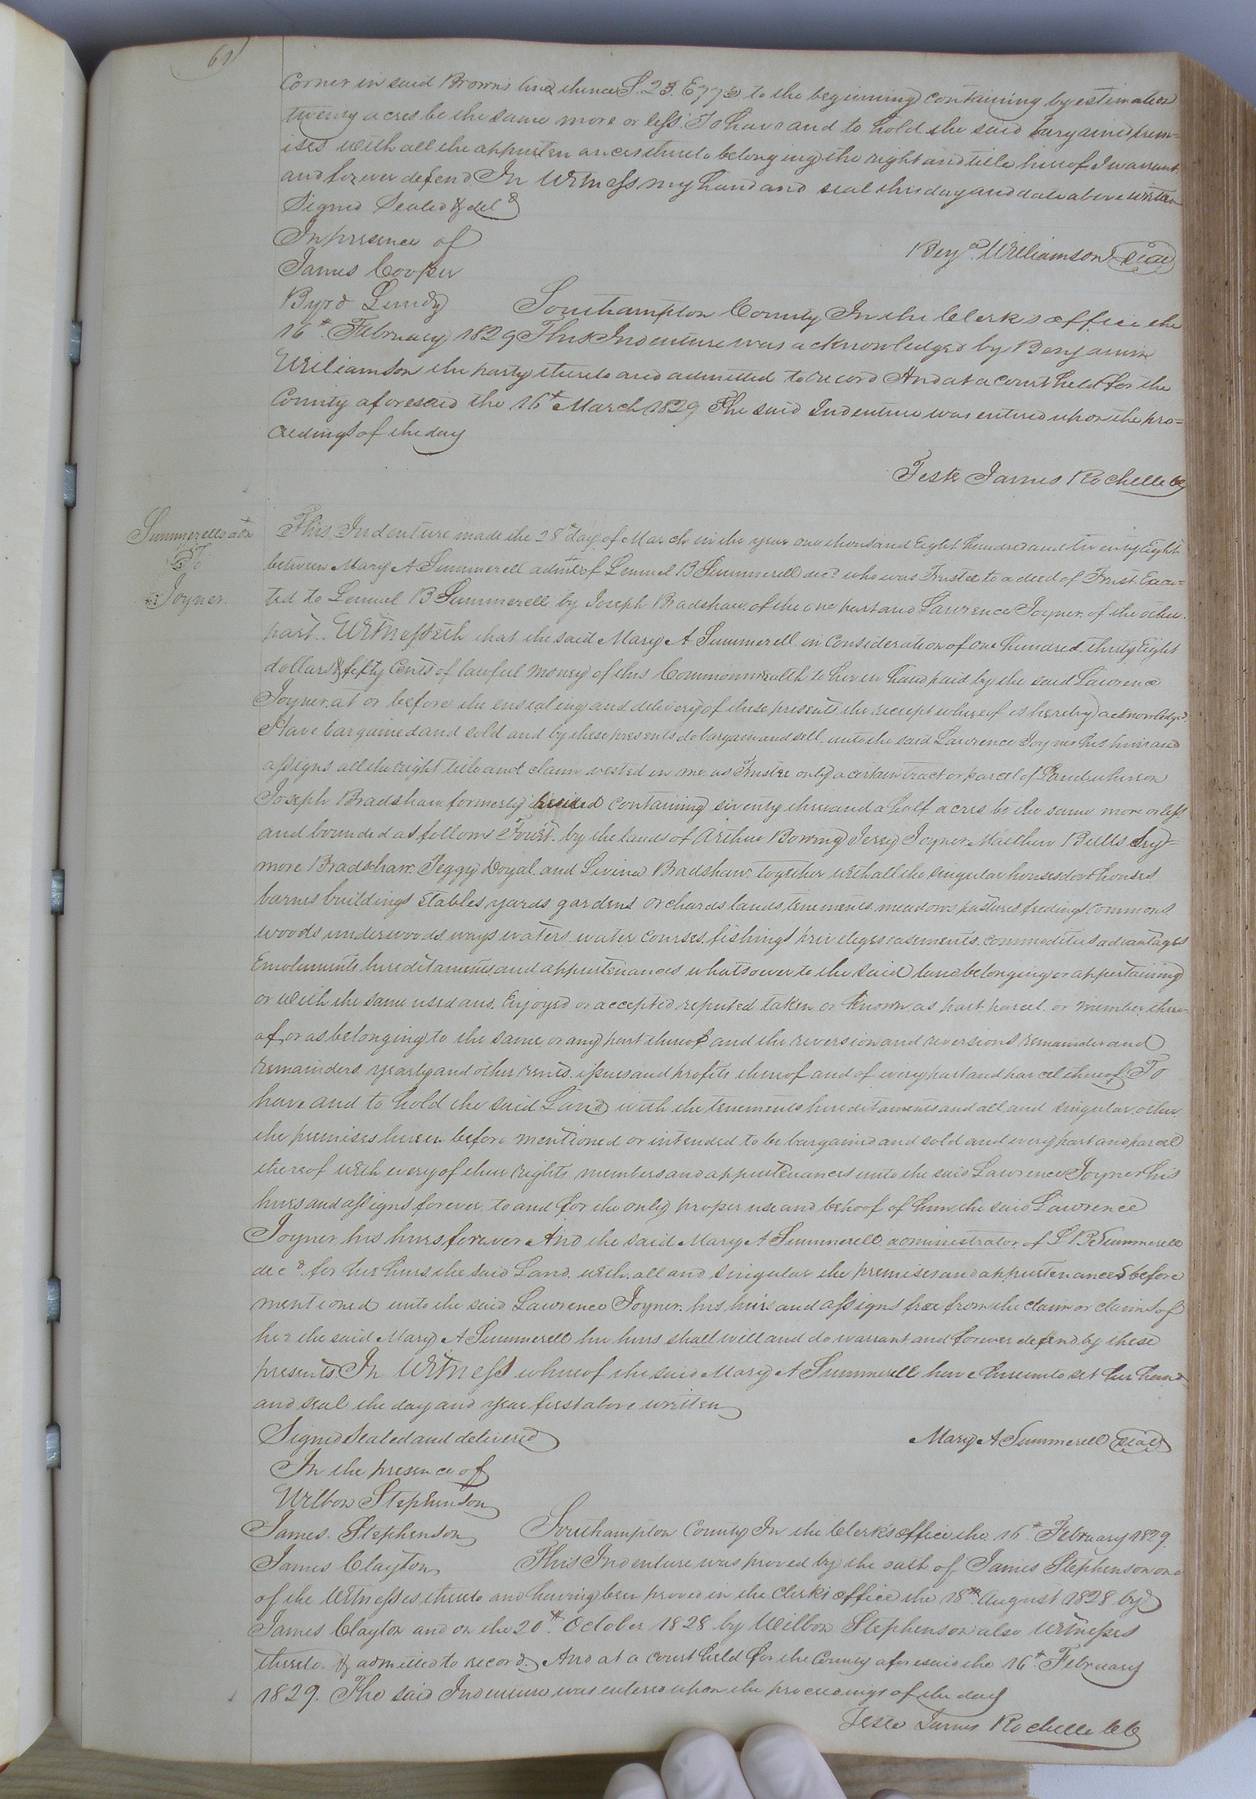 61
Corner in said Browns line thence S. 23. E 773 to the beginning containing by estimation
twenty acres be the same more or less. To have and to hold the said bargained prem=
ises with all the appurtenances thereto belonging the right and title hereof I warrant
and forever defend In Witness my hand and seal this day and date above written
Signed Sealed & deld
In presence of
Benja. Williamson Seal
James Cooper
Byrd Lundy
Southampton County In the Clerks office the
16th February 1829 This Indenture was acknowledged by Benjamin
Williamson the party thereto and admitted to record And at a court held for the
County aforesaid the 16th March 1829 The said Indenture was entered upon the pro=
ceedings of the day
Teste James Rochelle CC
Summerells adx
To
Joyner
This Indenture made the 28th day of March in the year one thousand Eight hundred and twenty Eight
between Mary A Summerell admx of Lemuel B Summerell decd who was Trustee to a deed of Trust Execu=
ted to Lemuel B Summerell by Joseph Bradshaw of the one part and Lawrence Joyner of the other
part. Witnesseth that the said Mary A Summerell in Consideration of one hundred thirty Eight
dollars & fifty Cents of lawful money of this Commonwealth to her in hand paid by the said Lawrence
Joyner at or before the ensealing and delivery of these presents the receipt whereof is hereby acknowledged
Have bargained and sold and by these presents do bargain and sell unto the said Lawrence Joyner his heirs and
assigns all the right title and claim vested in me as Trustee only a certain tract or parcel of Land whereon
Joseph Bradshaw formerly resided containing seventy three and a half acres be the same more or less
and bounded as follows by the lands of Arthur Bowing Jersy Joyner Matthew Bittls Dry=
more Bradshaw Peggy Doyal and Livina Bradshaw together with all the singular houses dove houses
barnes buildings stables yards gardens orchards lands tenements meadows pastures feedings commons
woods underwoods ways waters water courses fishings priveleges easements commodities advantages
Emoluments hereditaments and appurtenances whatsoever to the said land belonging or appertaining
or with the same used ans. Enjoyed or accepted reputed taken or known as part parcel or member there=
of or as belonging to the same or any part thereof and the reversion and reversions remainder and
remainders yearly and other rents issues and profits thereof and of every part and parcel thereof To
have and to hold the said Land with the tenements hereditaments and all and singular other
the premises herein before mentioned or intended to be bargained and sold and every part and parcel
thereof with every of their rights members and appurtenances unto the said Lawrence Joyner his
heirs and assigns forever to and for the only proper use and behoof of him the said Lawrence
Joyner his heirs forever And the said Mary A Summerell administrator of L B Summerell
decd. for her heirs the said Land with all and singular the premises and appurtenances before
mentioned unto the said Lawrence Joyner his heirs and assigns free from the claim or claims of
her the said Mary A Summerell her heirs shall will and do warrant and forever defend by these
presents In Witness whereof the said Mary A Summerell have hereunto set her hand
and seal the day and year first above written
Signed Sealed and delivered
Mary A Summerell Seal
In the presence of
Wilbon Stephenson
James Stephenson
James Clayton
Southampton County In the Clerks office the 16th February 1829.
This Indenture was proved by the oath of James Stephenson one
of the Witnesses thereto and having been proved in the Clerks office the 18th August 1828 by
James Clayton and on the 20th October 1828 by Wilbon Stephenson also Witnesses
thereto & admitted to record And at a court held for the County aforesaid the 16th February
1829. The said Indenture was entered upon the proceedings of the day
Teste James Rochelle CC